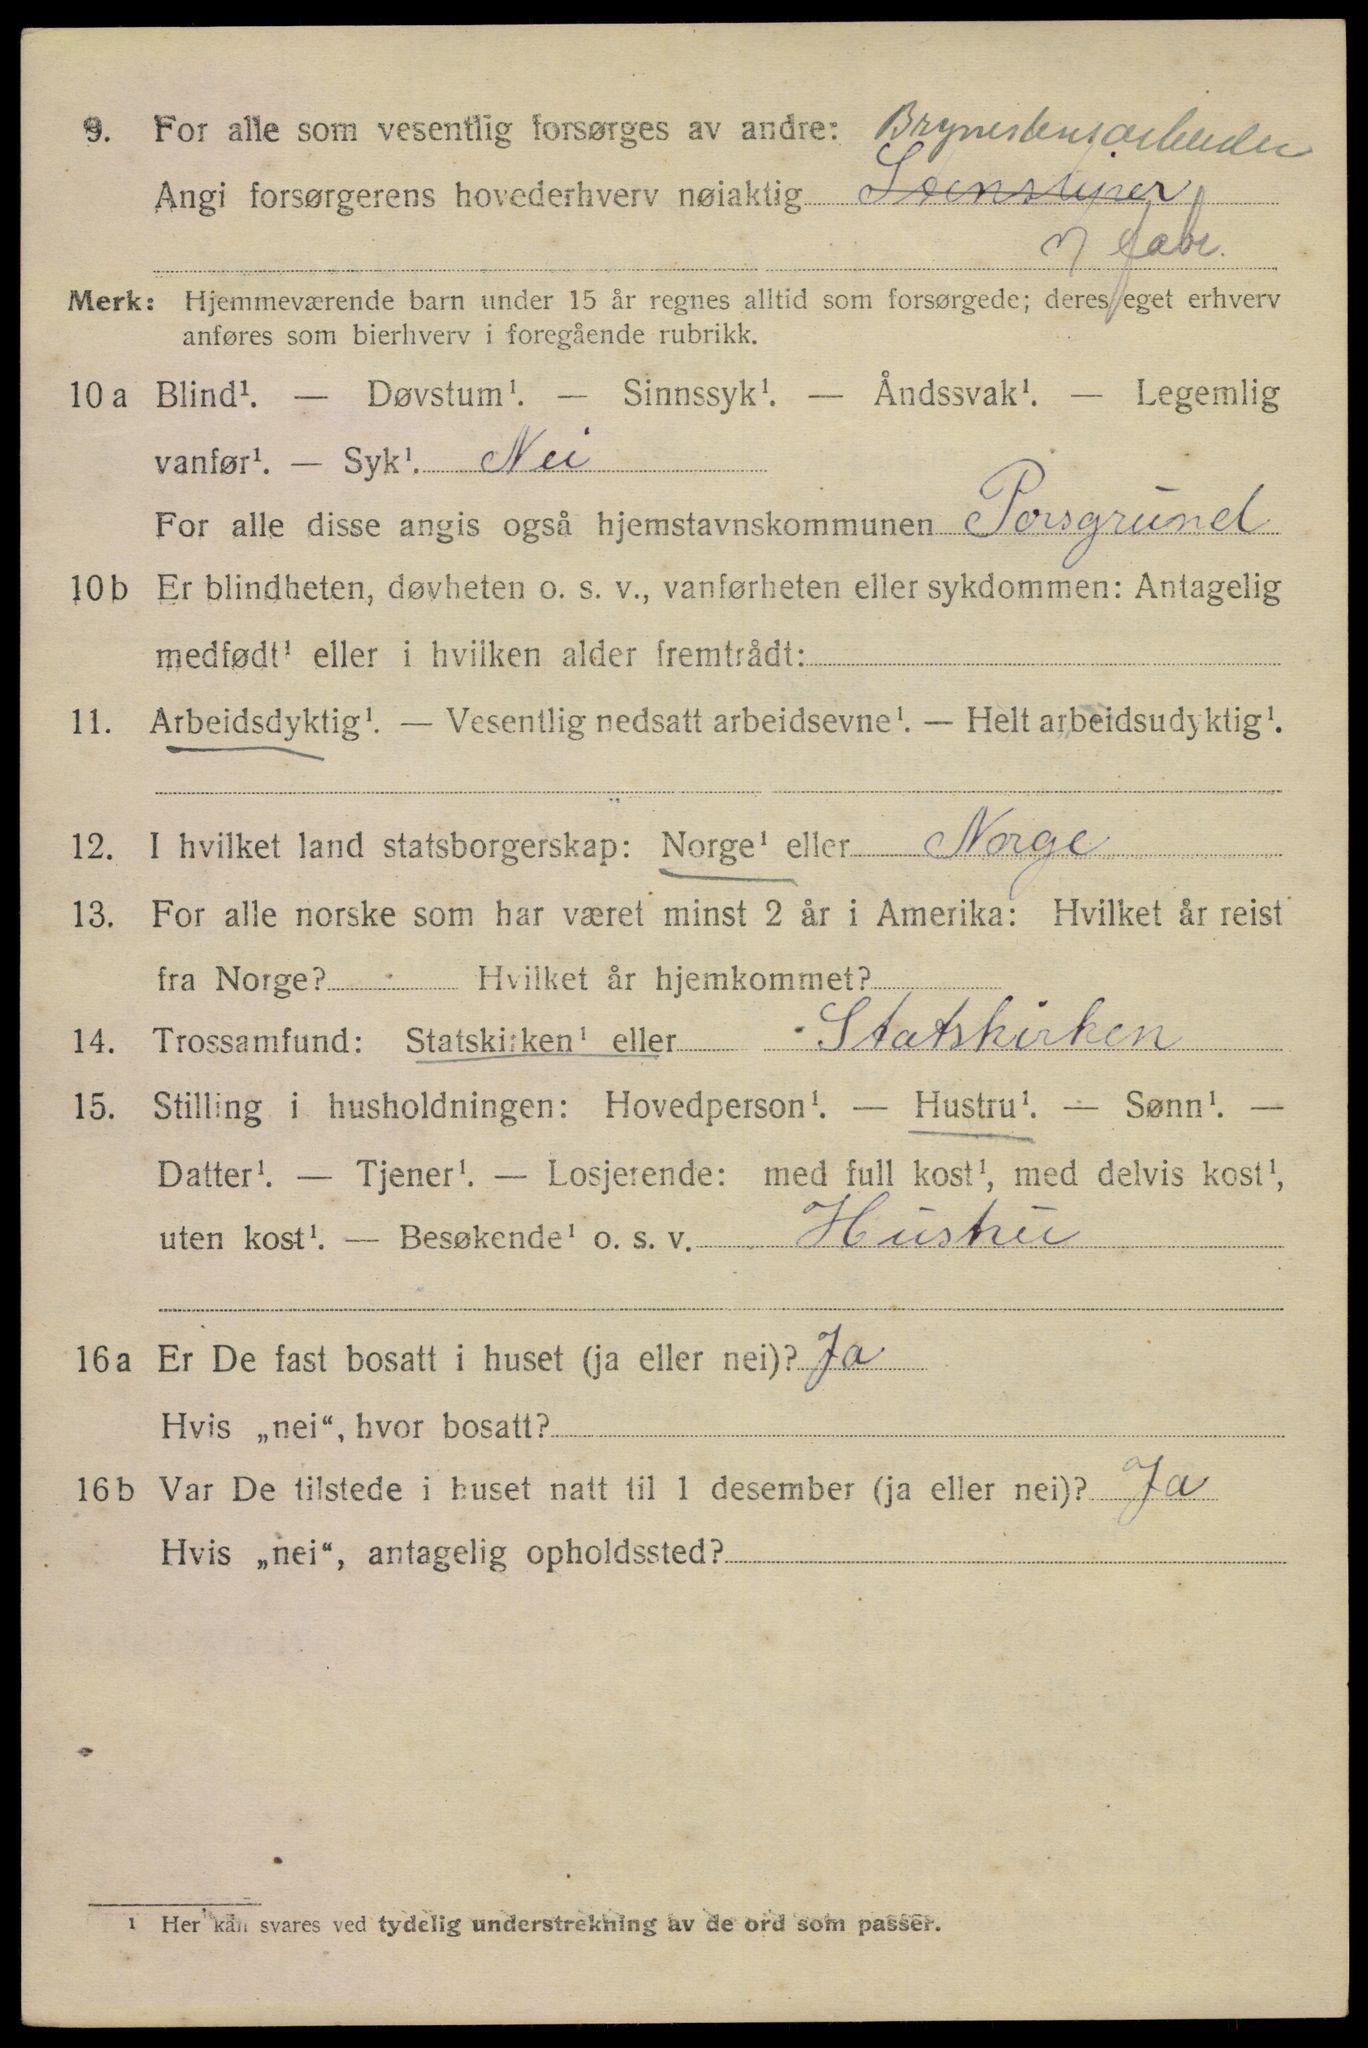 9. For alle som vesentlig forsørges av andre: Brynestensarbeider
Angi forsørgerens hovederhverv nøiaktig
v/ fabr.
Merk: Hjemmeværende barn under 15 år regnes alltid som forsørgede; deres eget erhverv
anføres som bierhverv i foregående rubrikk.
10 a Blind¹. — Døvstum¹. — Sinnssyk¹. — Åndssvak¹. — Legemlig
vanfør¹. — Syk¹. Nei
For alle disse angis også hjemstavnskommunen Porsgrund
10 b Er blindheten, døvheten o. s. v., vanførheten eller sykdommen: Antagelig
medfødt¹ eller i hvilken alder fremtrådt:
11. Arbeidsdyktig¹. — Vesentlig nedsatt arbeidsevne¹. — Helt arbeidsudyktig¹.
12. I hvilket land statsborgerskap: Norge¹ eller Norge
13. For alle norske som har været minst 2 år i Amerika: Hvilket år reist
fra Norge? Hvilket år hjemkommet?
14. Trossamfund: Statskirken¹ eller Statskirken
15. Stilling i husholdningen: Hovedperson¹. — Hustru¹. — Sønn¹. —
Datter¹. — Tjener¹. — Losjerende: med full kost¹, med delvis kost¹,
uten kost¹. — Besøkende¹ o. s. v. Hustru
16 a Er De fast bosatt i huset (ja eller nei)? Ja
Hvis „nei“, hvor bosatt?
16 b Var De tilstede i huset natt til 1 desember (ja eller nei)? Ja
Hvis „nei“, antagelig opholdssted?
¹ Her kan svares ved tydelig understrekning av de ord som passer.